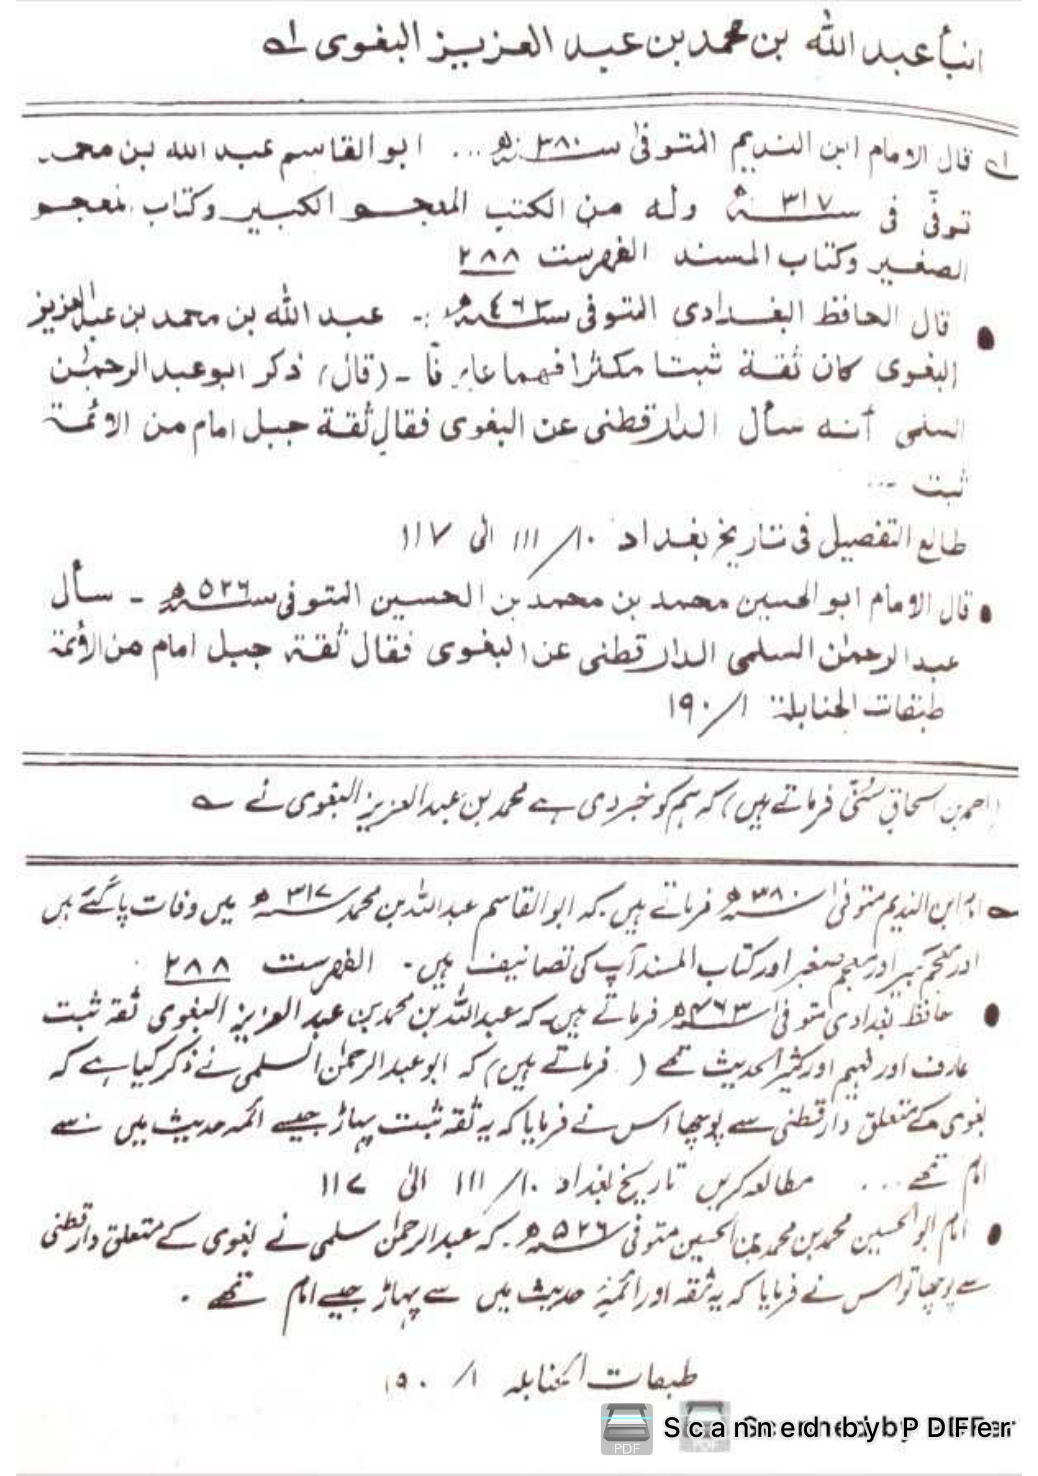 انبأ عبد الله بن محمد بن عبد العزيز البغوى لہ
لہ قال الامام ابن النديم المتوفىٰ سنہ ٣٨٠ھ ... ابو القاسم عبد الله بن محمد
توفّى فى سنہ ٣١٧ھ وله من الكتب المعجم الكبير وكتاب المعجم
الصغير وكتاب المسند الفهرست ٢٨٨
● قال الحافظ البغدادى المتوفى سنہ ٤٦٣ھ :- عبد الله بن محمد بن عبد العزيز
البغوى كان ثقة ثبتا مكثرا فهما عارفًا - (قال) ذكر ابو عبد الرحمٰن
السلمى أنه سأل الدارقطنى عن البغوى فقال ثقة جبل امام من الائمة
ثبت ...
طالع التفصيل فى تاريخ بغداد ١٠/ ١١١ الى ١١٧
● قال الامام ابو الحسين محمد بن محمد بن الحسين المتوفى سنہ ٥٢٦ھ - سأل
عبد الرحمٰن السلمى الدارقطنى عن البغوى فقال ثقة جبل امام من الائمة
طبقات الحنابلة ١/ ١٩٠
(احمد بن اسحاق سُنّی فرماتے ہیں) کہ ہم کو خبر دی ہے محمد بن عبد العزیز البغوی نے لہ
لہ امام ابن الندیم متوفیٰ سنہ ٣٨٠ھ فرماتے ہیں کہ ابو القاسم عبد اللہ بن محمد سنہ ٣١٧ھ میں وفات پا گئے ہیں
اور معجم کبیر اور معجم صغیر اور کتاب المسند آپ کی تصانیف ہیں ۔ الفہرست ٢٨٨
● حافظ بغدادی متوفیٰ سنہ ٤٦٣ھ فرماتے ہیں کہ عبد اللہ بن محمد بن عبد العزیز البغوی ثقہ ثبت
عارف اور فہیم اور کثیر الحدیث تھے ( فرماتے ہیں) کہ ابو عبد الرحمٰن السلمی نے ذکر کیا ہے کہ
بغوی کے متعلق دارقطنی سے پوچھا اس نے فرمایا کہ یہ ثقہ ثبت پہاڑ جیسے ائمہ حدیث میں سے
امام تھے ... مطالعہ کریں تاریخ بغداد ١٠/ ١١١ الیٰ ١١٧
● امام ابو الحسین محمد بن محمد بن الحسین متوفیٰ سنہ ٥٢٦ھ کہ عبد الرحمٰن سلمی نے بغوی کے متعلق دارقطنی
سے پوچھا تو اس نے فرمایا کہ یہ ثقہ اور ائمۂ حدیث میں سے پہاڑ جیسے امام تھے ۔
طبقات الحنابلہ ١/ ١٩٠
Scanned by PDFFer